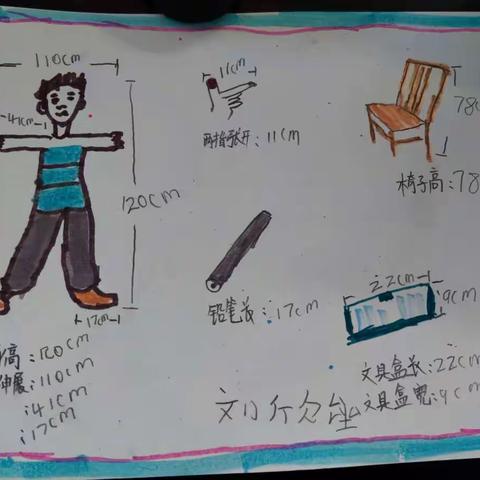 110cm
11cm
41cm
78c
120cm
两指张开：11cm
椅子高：78
22cm
9cm
铅笔长：17cm
17cm
高：120cm
伸展：110cm
：41cm
：17cm
文具盒长：22cm
文具盒宽：9cm